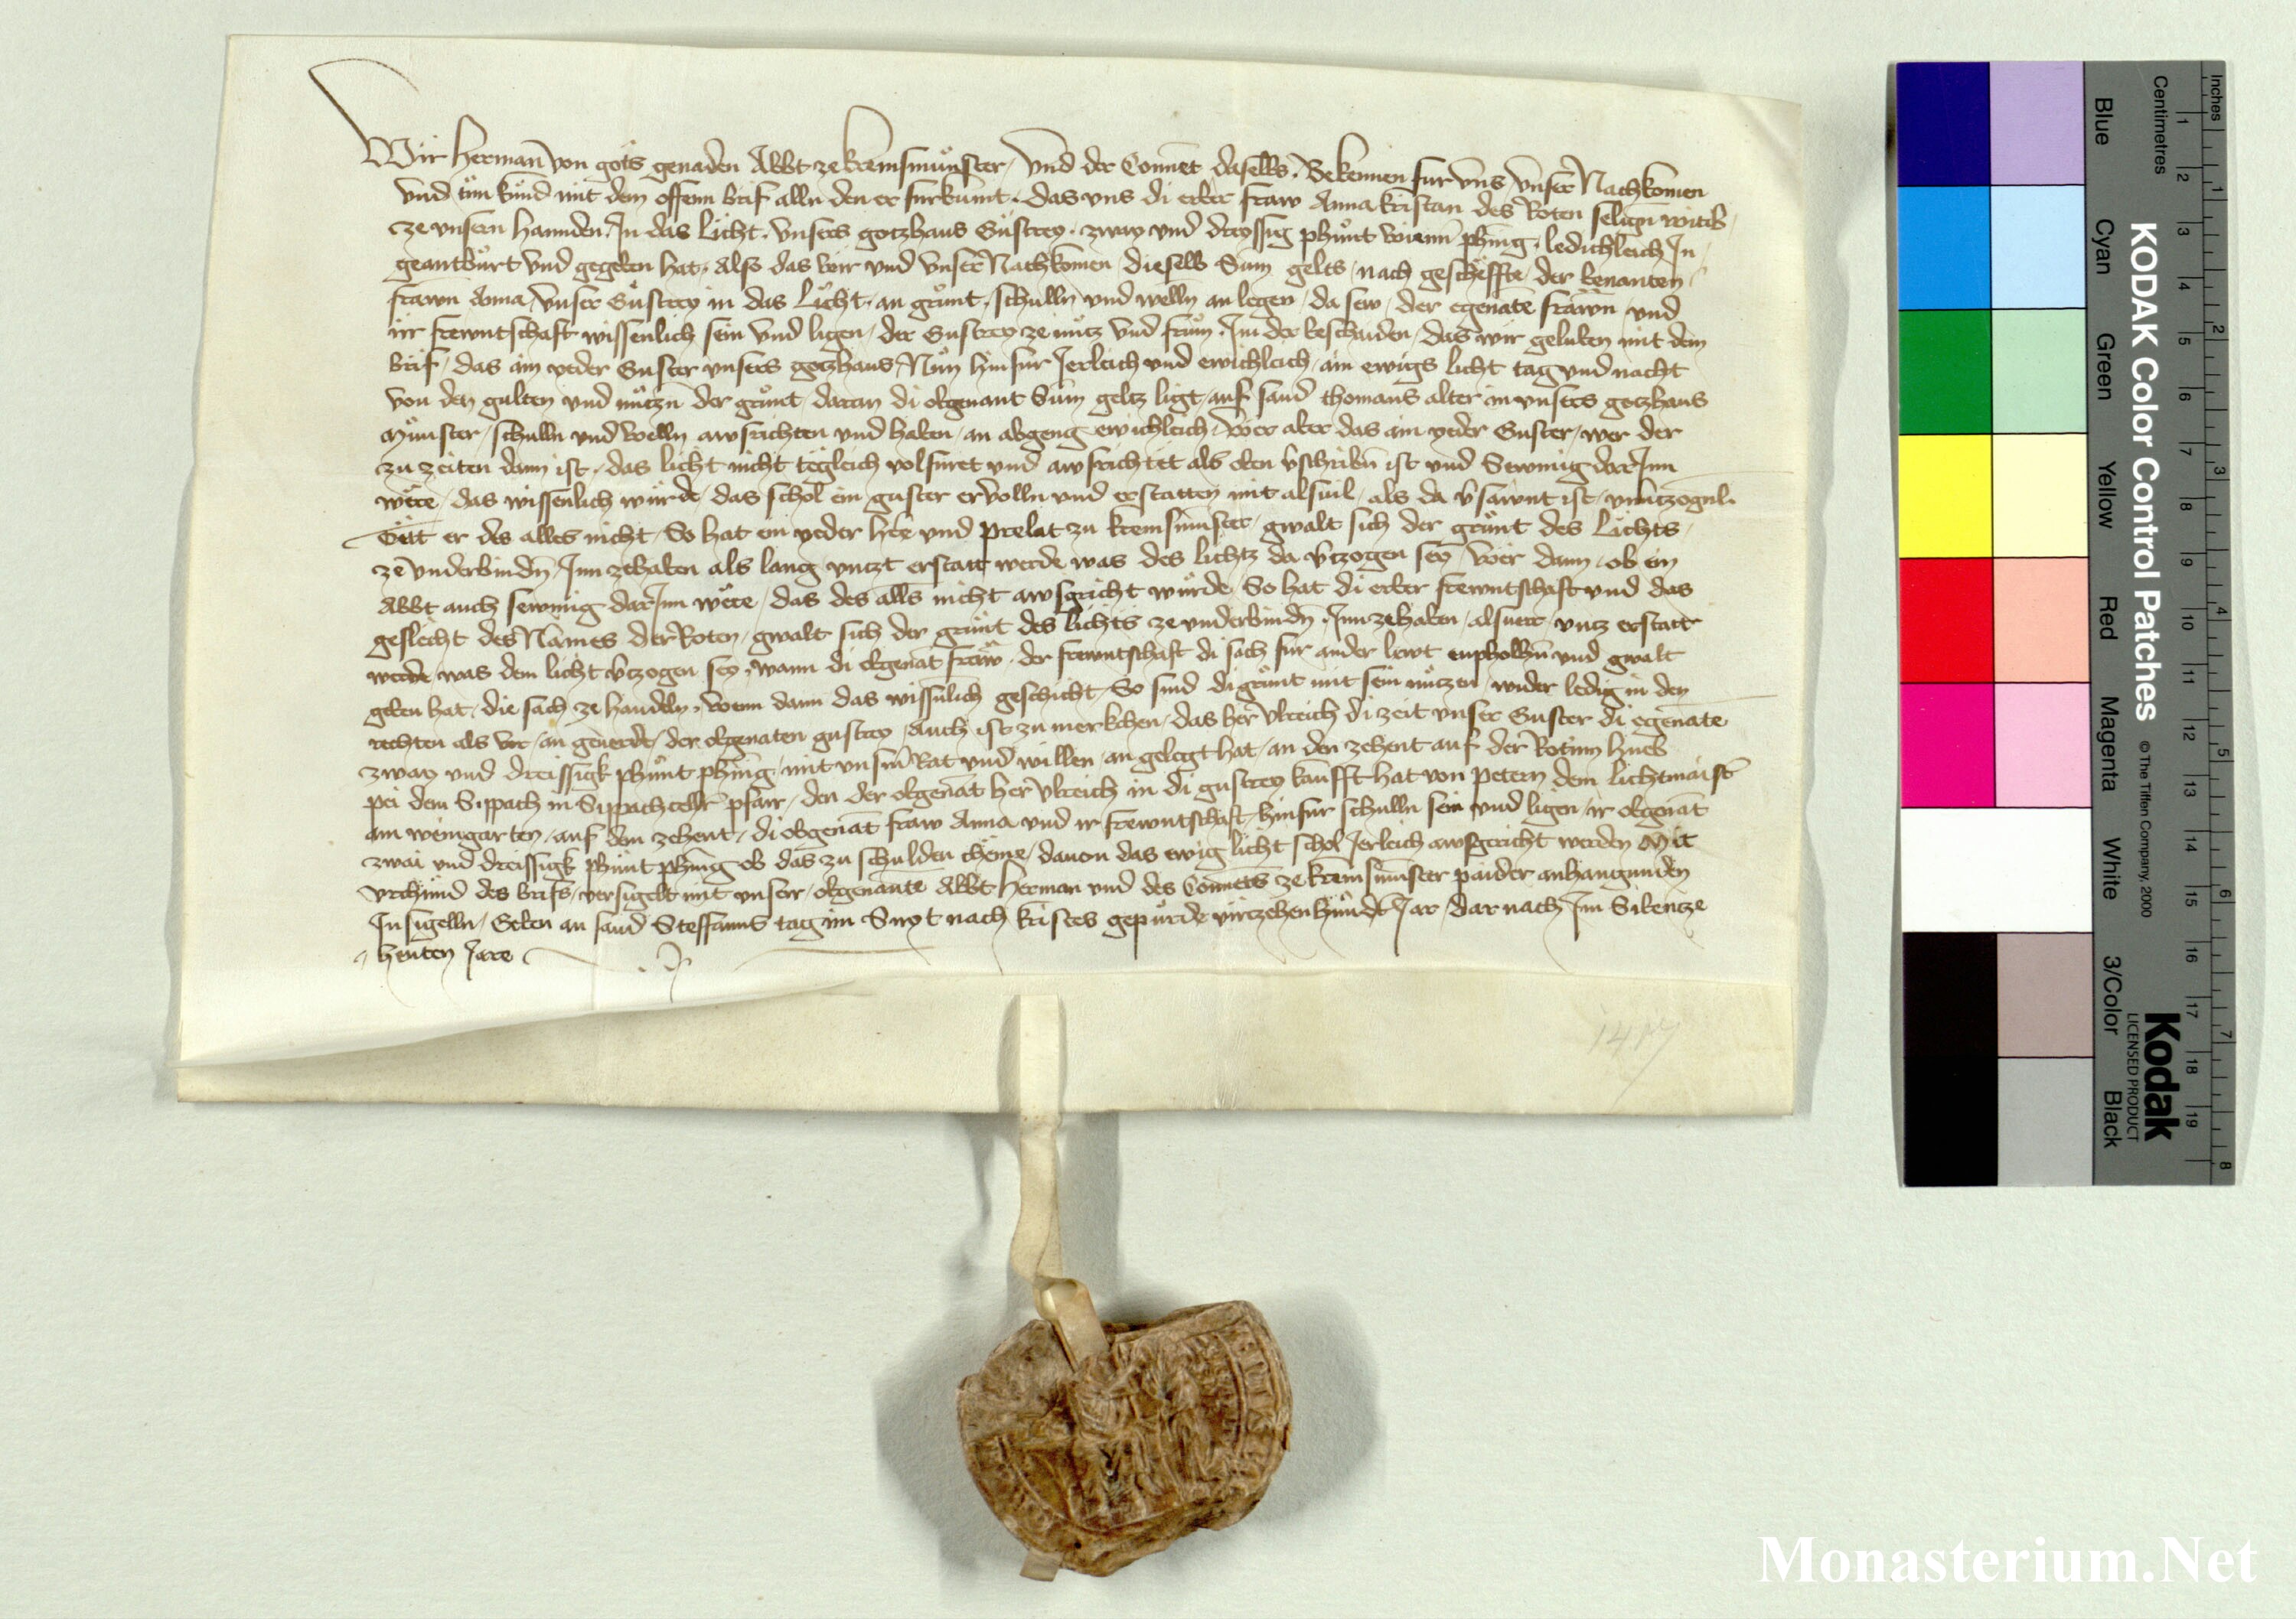 Wir Herman von gots genaden Abbt ze kremsmůnster / vnd der Conuent daselbs . Bekennen fur vns vnser Nachkomen
vnd tůn kůnd mit dem offenn brif alln den er furkumt . das vns di erber fraw Anna kristan des Roten seligen witib /
ze vnsern hannden . In das Liecht . vnsers gotzhaus Gůstrey . zway vnd dreyssig phůnt wienn phing . ledichleich In /
geantbůrt vnd gegeben hat / Also das wir vnd vnser Nachkomen / dieselb Sum gelts / nach gescheffte / der benanten /
frawn Anna / vnser Gůstrey in das Liecht . an grůnt . schulln vnd welln an legen / da sew / der egenate frawn vnd
ir frewntschaft wissenlich sein vnd ligen / der Gustrey ze nůtz vnd frům . In der beschaiden / das wir geluben mit dem
brif / das ain yeder Guster vnsers gotzhaus / Nůn hinfur Jerleich vnd ewichleich / ain ewigs licht tag vnd nacht
von den gulten vnd nůtzn der grůnt / daran di obgenant Sum geltz ligt / auf sand thomans alter in vnsers gotzhaus
Můnster / schulln vnd welln awsrichten vnd haben / an abgeng ewichleich / Wer aber das ain yeder Guster / wer der
zu zeiten dann ist / das licht nicht tegleich volfuret vnd awsrichtet als oben v̄schribn ist vnd Sewmig dar Inn
wěre / das wissenlich wůrde / das schol ein guster ervolln vnd erstatten mit alsuil / als da v̄sawmt ist / vnu̇tzogenl .
Tět er des alles nicht / So hat ein yeder herr vnd prelat zu kremsmůnster / gwalt sich der grůnt des Liechts /
ze vnderbindn / Inn zehaben als lang vntzt erstatt werde was des lichtz da v̄tzogen sey / Wer dann / ob ein
Abbt auch sewmig dar Inn wěre / das des alls nicht awsgricht wůrde / So hat di erber frewntschaft vnd das
geslecht des Names der Roten / gwalt sich der grůnt des lichts ze vnderbindn . Inn zehaben / alsuerr vntz erstatt
werde was dem licht v̄tzogen sey / wann di obgenat fraw / der frewntschaft di sach fur ander lewt enpholhn vnd gwalt
geben hat / die sach ze handeln / wenn dann das wissenlich geschicht / So sind di grůnt mit sein nůtzen / wider ledig in den
rechten als vor / an geuerde / der obgenaten gustrey / Auch ist zu merkchen / das her Vlreich di zeit vnser Guster di egenate
zway vnd dreissigk phůnt phing / mit vnserm Rat vnd willen / an gelegt hat / an den zehent auf der Rotinn hueb
pei dem Sippach in Sippachceller pfarr / den der obgenat her Vlreich in di gustrey kaufft hat von petern dem lichtmaister
am weingarten / auf dem zehent / di obgenat fraw Anna vnd ir frewntschaft / hinfur schulln sein vnd ligen / ir obgenat
zwai vnd dreissigk phůnt phing ob das zu schulden chěme / dauon das ewig licht schol Jerleich awsgericht werden Mit
vrchůnd des brifs / versigelt mit vnserr / obgenante Abbt Herman vnd des Conuents ze kremsmůnster paider anhangunden
Insigelln / Geben an sand Steffanns tag im Snyt nach kristes gepůrde virtzehenhůndert Jar / dar nach Im Sibentze
henten Jare
1417
Inches
Centimetres
1 2 3 4 5 6 7 8 9 10 11 12 13 14 15 16 17 18 19
1 2 3 4 5 6 7 8
Blue Cyan Green Yellow Red Magenta White 3/Color Black
KODAK Color Control Patches
© The Tiffen Company, 2000
Kodak
LICENSED PRODUCT
Monasterium.Net